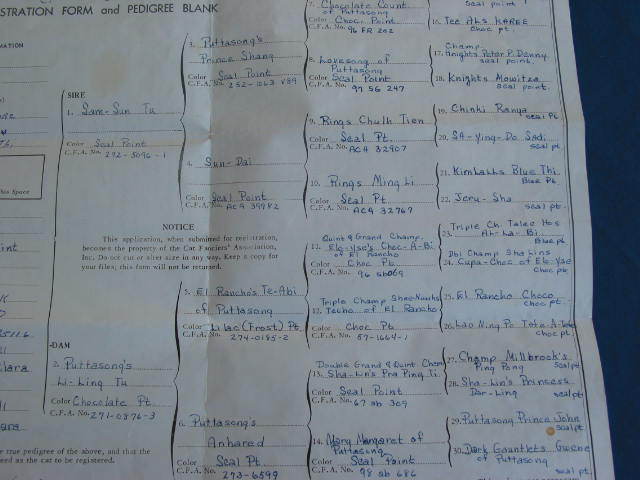 STRATION FORM and PEDIGREE BLANK
SIRE
1. Sam-Sun Tu
Color Seal Point
C.F.A. No. 272-5096-1
NOTICE
This application, when submitted for registration,
becomes the property of the Cat Fanciers' Association,
Inc. Do not cut or alter size in any way. Keep a copy for
your files, this form will not be returned.
DAM
2. Puttasong's
Li-Ling Tu
Color Chocolate Pt.
C.F.A. No. 271-0876-3
true pedigree of the above, and that the
eed as the cat to be registered.
3. Puttasong's
Prince Shang
Color Seal Point
C.F.A. No.
4. Sun-Dai
Color Seal Point
C.F.A. No. ACA 35982
5. El Rancho's Te-Abi
of Puttasong
Color Lilac (Frost) Pt.
C.F.A. No. 274-0185-2
6. Puttasong's
Anhared
Color Seal Pt.
C.F.A. No. 273-6599
7. Chocolate Count
of Puttasong
Color Choc. Point
C.F.A. No. 96 FR 202
8. Lovesong of
Puttasong
Color Seal Point
C.F.A. No. 97 56 247
9. Rings Chulh Tien
Color Seal Pt.
C.F.A. No. ACA 32907
10. Rings Ming Li
Color Seal Pt.
C.F.A. No. ACA 32767
Quint & Grand Champ.
11. Ele-Vse's Choc-A-Bi
of El Rancho
Color Choc Pt.
C.F.A. No.
Triple Champ
12. of El Rancho
Color Choc Pt.
C.F.A. No. 87-1664-1
Double Grand & Quint Cham
13. Sha-Lin's Pra Ping Ti
Color Seal Point
C.F.A. No. 67 ab 309
14. Mary Margaret of
Puttasong
Color Seal Point
C.F.A. No. 98 ab 686
seal pt.
16. Tee Aks Karee
choc pt.
Champ
17. Knights Peter P. Denny
seal point.
18. Knights Mowitza
seal point.
19. Chinki Ranya
seal pt
20. Sa-Ying-Do Sadi
seal pt.
21. Kimlahhs Blue Thi
Blue Pt.
22. Jeru-Sha
seal pt.
Triple Ch. Talee Hos
23. Ah-Ka-Bi
Blue pt.
Dbl Champ Sha Lins
24. Cupa-Choc of Ele-Vse
choc pt.
25. El Rancho Choco
choc pt.
26. Lao Ning Po
choc pt.
27. Champ Millbrook's
Ping Pong seal pt
28. Sha-Lin's Princess
Dar-Ling seal pt
29. Puttasong Prince John
seal pt.
30. Dark Gauntlets Gwene
of Puttasong
seal pt.